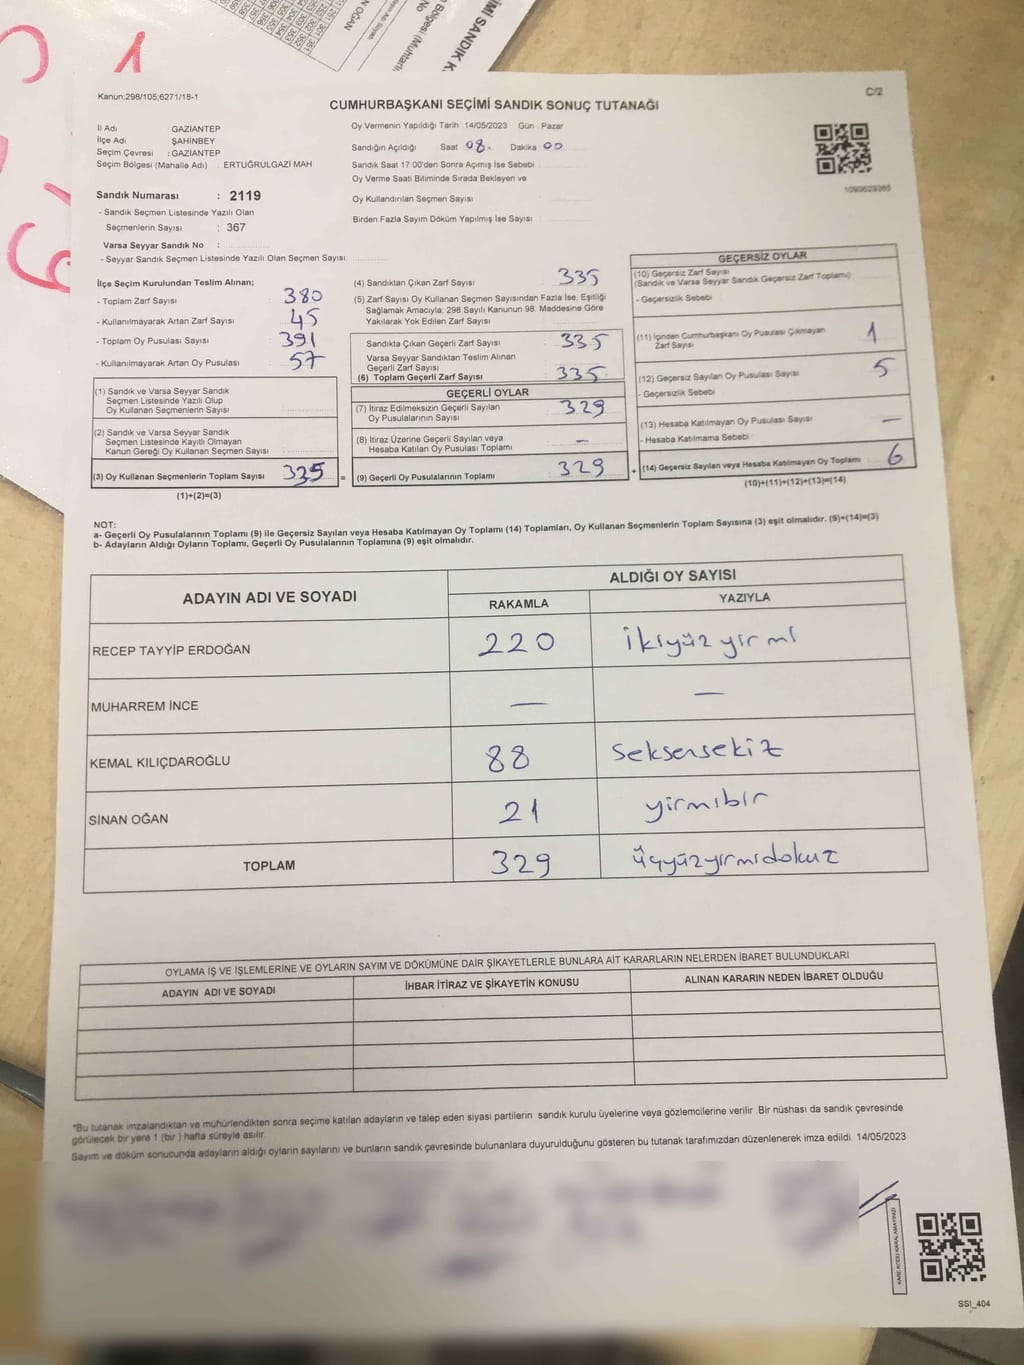 Kanun:298/105;6271/18-1
C/2
CUMHURBAŞKANI SEÇİMİ SANDIK SONUÇ TUTANAĞI
İl Adı : GAZİANTEP
İlçe Adı : ŞAHİNBEY
Seçim Çevresi : GAZİANTEP
Seçim Bölgesi (Mahalle Adı) : ERTUĞRULGAZİ MAH
Oy Vermenin Yapıldığı Tarih :14/05/2023 Gün : Pazar
Sandığın Açıldığı Saat 08 Dakika 00
Sandık Saat 17:00'den Sonra Açımış İse Sebebi
Oy Verme Saati Bitiminde Sırada Bekleyen ve
Oy Kullandırılan Seçmen Sayısı
Birden Fazla Sayım Döküm Yapılmış İse Sayısı
1093629365
Sandık Numarası : 2119
- Sandık Seçmen Listesinde Yazılı Olan
Seçmenlerin Sayısı : 367
Varsa Seyyar Sandık No :
- Seyyar Sandık Seçmen Listesinde Yazılı Olan Seçmen Sayısı:
İlçe Seçim Kurulundan Teslim Alınan;
- Toplam Zarf Sayısı : 380
- Kullanılmayarak Artan Zarf Sayısı : 45
- Toplam Oy Pusulası Sayısı : 391
- Kullanılmayarak Artan Oy Pusulası : 57
(1) Sandık ve Varsa Seyyar Sandık
Seçmen Listesinde Yazılı Olup
Oy Kullanan Seçmenlerin Sayısı :
(2) Sandık ve Varsa Seyyar Sandık
Seçmen Listesinde Kayıtlı Olmayan
Kanun Gereği Oy Kullanan Seçmen Sayısı :
(3) Oy Kullanan Seçmenlerin Toplam Sayısı : 335 =
(1)+(2)=(3)
(4) Sandıktan Çıkan Zarf Sayısı : 335
(5) Zarf Sayısı Oy Kullanan Seçmen Sayısından Fazla İse, Eşitliği
Sağlamak Amacıyla; 298 Sayılı Kanunun 98. Maddesine Göre
Yakılarak Yok Edilen Zarf Sayısı :
Sandıkta Çıkan Geçerli Zarf Sayısı : 335
Varsa Seyyar Sandıktan Teslim Alınan
Geçerli Zarf Sayısı :
(6) Toplam Geçerli Zarf Sayısı : 335
GEÇERLİ OYLAR
(7) İtiraz Edilmeksizin Geçerli Sayılan
Oy Pusulalarının Sayısı : 329
(8) İtiraz Üzerine Geçerli Sayılan veya
Hesaba Katılan Oy Pusulası Toplamı : —
(9) Geçerli Oy Pusulalarının Toplamı : 329 +
GEÇERSİZ OYLAR
(10) Geçersiz Zarf Sayısı
(Sandık ve Varsa Seyyar Sandık Geçersiz Zarf Toplamı)
- Geçersizlik Sebebi
(11) İçinden Cumhurbaşkanı Oy Pusulası Çıkmayan
Zarf Sayısı : 1
(12) Geçersiz Sayılan Oy Pusulası Sayısı : 5
- Geçersizlik Sebebi
(13) Hesaba Katılmayan Oy Pusulası Sayısı : —
- Hesaba Katılmama Sebebi
(14) Geçersiz Sayılan veya Hesaba Katılmayan Oy Toplamı : 6
(10)+(11)+(12)+(13)=(14)
NOT:
a- Geçerli Oy Pusulalarının Toplamı (9) ile Geçersiz Sayılan veya Hesaba Katılmayan Oy Toplamı (14) Toplamları, Oy Kullanan Seçmenlerin Toplam Sayısına (3) eşit olmalıdır. (9)+(14)=(3)
b- Adayların Aldığı Oyların Toplamı, Geçerli Oy Pusulalarının Toplamına (9) eşit olmalıdır.
ADAYIN ADI VE SOYADI
ALDIĞI OY SAYISI
RAKAMLA YAZIYLA
RECEP TAYYİP ERDOĞAN 220 ikiyüz yirmi
MUHARREM İNCE — —
KEMAL KILIÇDAROĞLU 88 Seksensekiz
SİNAN OĞAN 21 yirmibir
TOPLAM 329 üçyüzyirmidokuz
OYLAMA İŞ VE İŞLEMLERİNE VE OYLARIN SAYIM VE DÖKÜMÜNE DAİR ŞİKAYETLERLE BUNLARA AİT KARARLARIN NELERDEN İBARET BULUNDUKLARI
ADAYIN ADI VE SOYADI İHBAR İTİRAZ VE ŞİKAYETİN KONUSU ALINAN KARARIN NEDEN İBARET OLDUĞU
*Bu tutanak imzalandıktan ve mühürlendikten sonra seçime katılan adayların ve talep eden siyasi partilerin sandık kurulu üyelerine veya gözlemcilerine verilir .Bir nüshası da sandık çevresinde
görülecek bir yere 1 (bir ) hafta süreyle asılır.
Sayım ve döküm sonucunda adayların aldığı oyların sayılarını ve bunların sandık çevresinde bulunanlara duyurulduğunu gösteren bu tutanak tarafımızdan düzenlenerek imza edildi. 14/05/2023
KARE KODU KARALAMAYINIZ!
SSİ_404